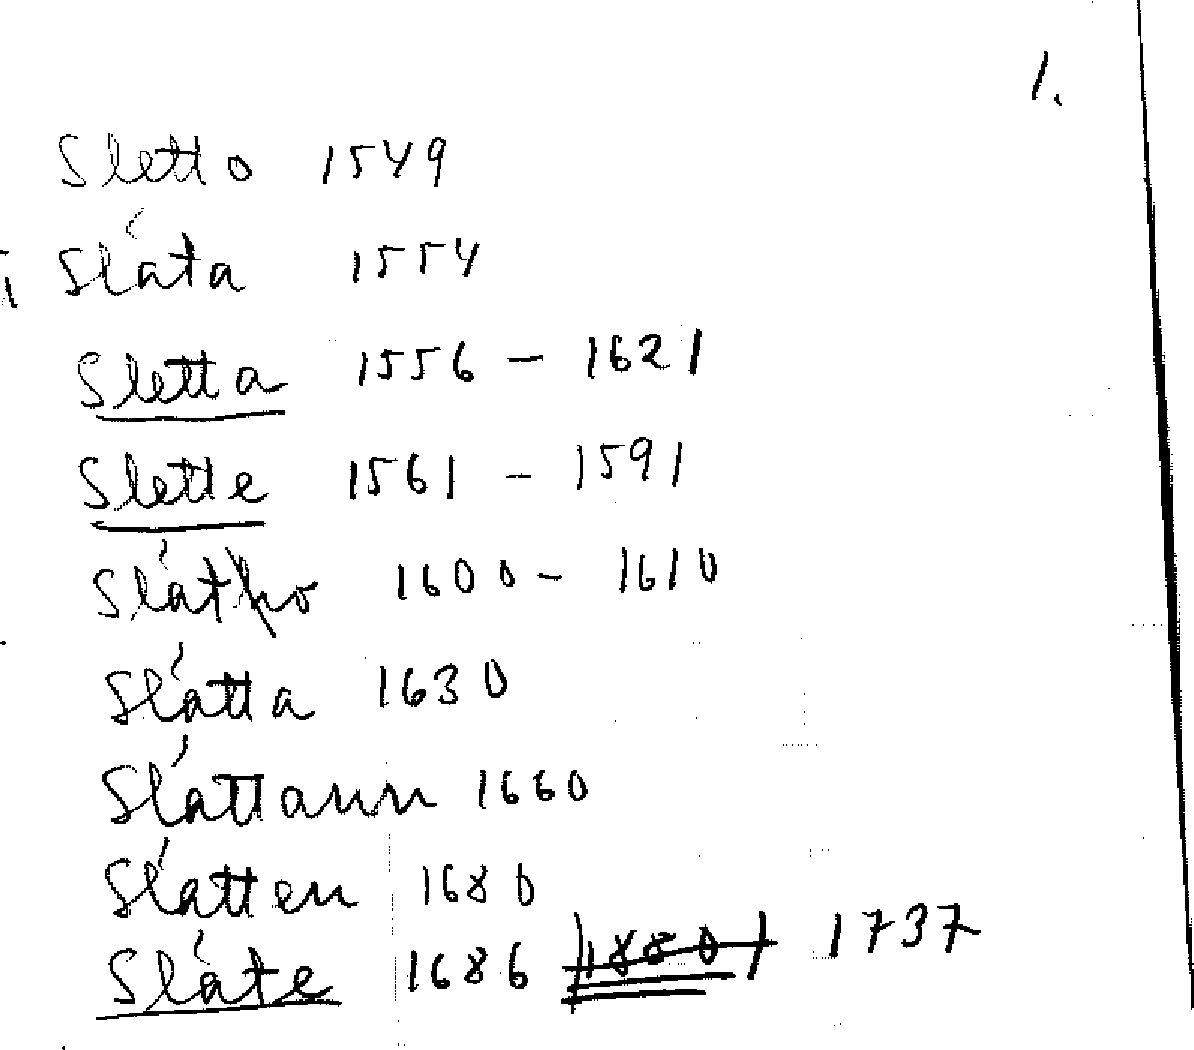 1.
Sletto 1549
Sláta 1554
Sletta 1556 - 1621
Slette 1561 - 1591
1600 - 1610
Slátta 1630
Sláttann 1660
Slátten 1680
Sláte 1686 1880 1737